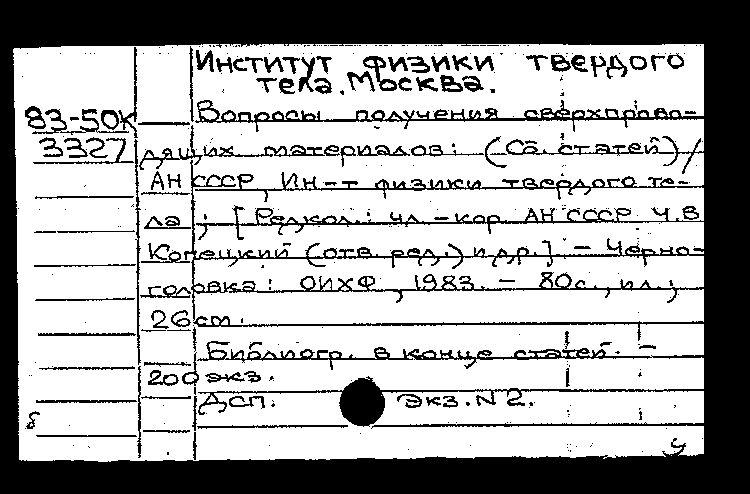 Институт физики твердого
тела. Москва.
83-50К
3327
Вопросы получения сверхпрово-
дящих материалов: (Сб. статей) /
АН СССР, Ин-т физики твердого те-
ла; [Редкол.: чл.-кор АН СССР Ч.В
Копецкий (отв. ред.) и др.] - Черно-
головка: ОИХФ, 1983. - 80с., ил.;
26см.
Библиогр. в конце статей. -
200 экз.
Дсп. Экз. N 2.
б
у